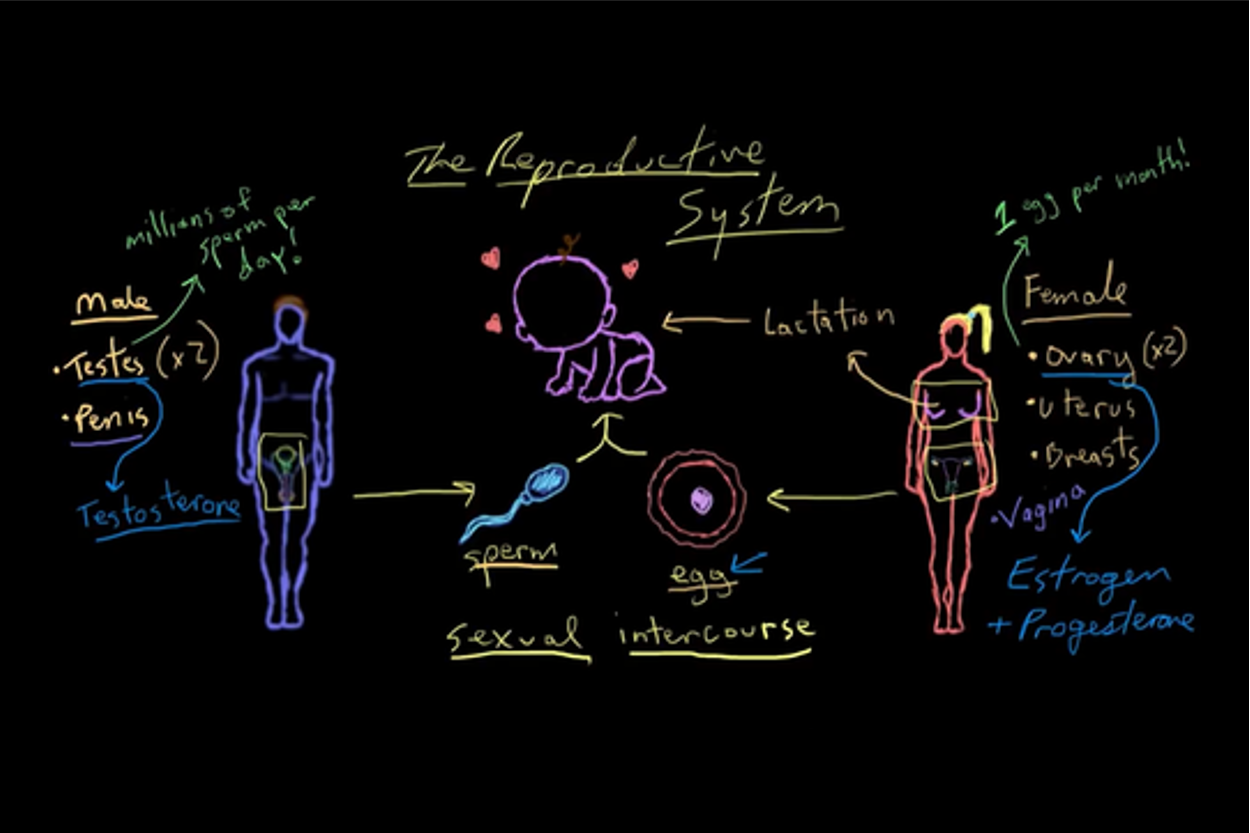 The Reproductive
System
millions of
sperm per
day!
Male
• Testes (x2)
• Penis
Testosterone
Lactation
1 egg per month!
Female
• Ovary (x2)
• Uterus
• Breasts
• Vagina
Estrogen
+ Progesterone
sperm
egg
sexual intercourse